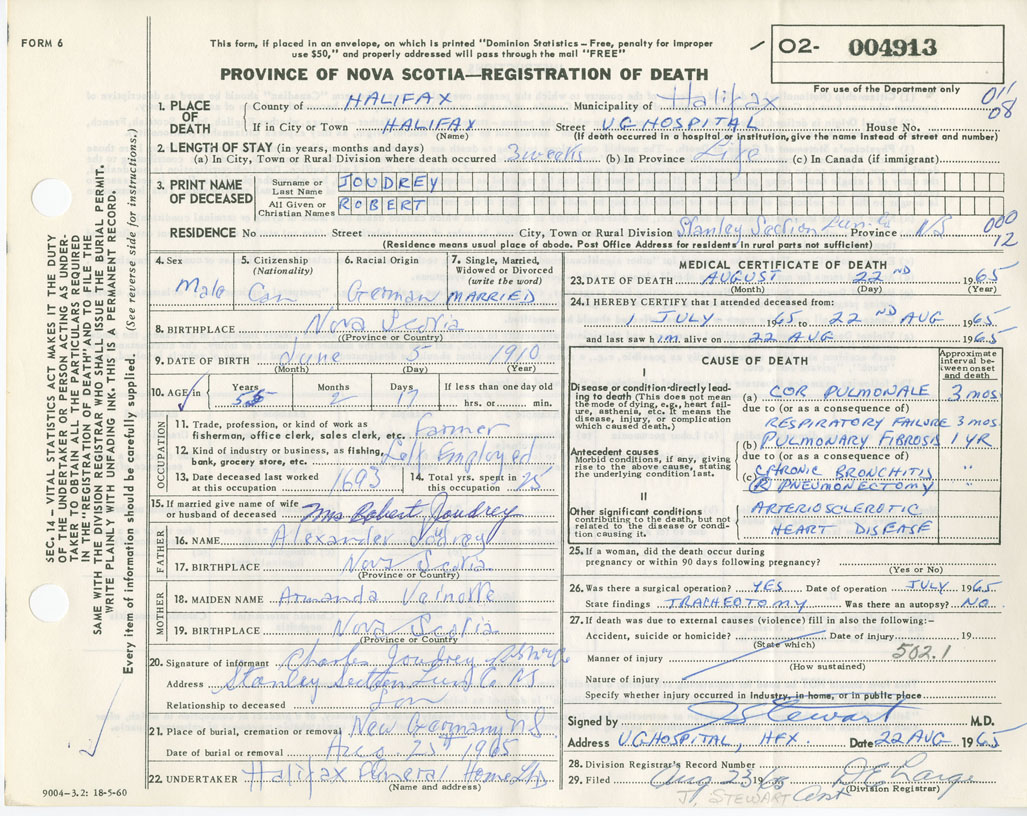 FORM 6
This form, if placed in an envelope, on which is printed "Dominion Statistics – Free, penalty for improper
use $50," and properly addressed will pass through the mail "FREE"
PROVINCE OF NOVA SCOTIA—REGISTRATION OF DEATH
02- 004913
For use of the Department only
011
08
1. PLACE OF DEATH
County of HALIFAX Municipality of Halifax
If in City or Town HALIFAX Street V.G HOSPITAL House No.
(Name) (If death occurred in a hospital or institution, give the name instead of street and number)
2. LENGTH OF STAY (in years, months and days)
(a) In City, Town or Rural Division where death occurred 3 weeks (b) In Province Life (c) In Canada (if immigrant)
3. PRINT NAME OF DECEASED
Surname or Last Name JOUDREY
All Given or Christian Names ROBERT
RESIDENCE No Street City, Town or Rural Division Stanley Section Lun. Co Province NS
(Residence means usual place of abode. Post Office Address for residents in rural parts not sufficient)
000
12
4. Sex Male
5. Citizenship (Nationality) Can
6. Racial Origin German
7. Single, Married, Widowed or Divorced (write the word) MARRIED
8. BIRTHPLACE Nova Scotia
(Province or Country)
9. DATE OF BIRTH June 5 1910
(Month) (Day) (Year)
10. AGE Years 55 Months 2 Days 17 If less than one day old hrs. or min.
OCCUPATION
11. Trade, profession, or kind of work as
fisherman, office clerk, sales clerk, etc. Farmer
12. Kind of industry or business, as fishing,
bank, grocery store, etc. Self Employed
13. Date deceased last worked at this occupation 1693
14. Total yrs. spent in this occupation 25
15. If married give name of wife
or husband of deceased Mrs Robert Joudrey
FATHER
16. NAME Alexander Joudrey
17. BIRTHPLACE Nova Scotia
(Province or Country)
MOTHER
18. MAIDEN NAME Armanda
19. BIRTHPLACE Nova Scotia
(Province or Country)
20. Signature of informant Charles Joudrey
Address Stanley Section Lung Co NS
Relationship to deceased Son
21. Place of burial, cremation or removal New Germany NS
Date of burial or removal Aug 25th 1965
22. UNDERTAKER Halifax Funeral Home Ltd
(Name and address)
9004-3.2: 18-5-60
MEDICAL CERTIFICATE OF DEATH
23. DATE OF DEATH AUGUST 22ND 1965
(Month) (Day) (Year)
24. I HEREBY CERTIFY that I attended deceased from:
1 JULY 1965 to 22ND AUG 1965
and last saw him alive on 22 AUG 1965
CAUSE OF DEATH
Approximate interval between onset and death
I
Disease or condition directly leading to death (This does not mean the mode of dying, e.g., heart failure, asthenia, etc. It means the disease, injury, or complication which caused death.)
(a) COR PULMONALE 3 mos
due to (or as a consequence of)
RESPIRATORY FAILURE 3 mos.
(b) PULMONARY FIBROSIS 1 YR
Antecedent causes
Morbid conditions, if any, giving rise to the above cause, stating the underlying condition last.
due to (or as a consequence of)
(c) CHRONIC BRONCHITIS "
(R) PNEUMONECTOMY "
II
Other significant conditions
contributing to the death, but not related to the disease or condition causing it.
ARTERIOSCLEROTIC
HEART DISEASE
25. If a woman, did the death occur during
pregnancy or within 90 days following pregnancy?
(Yes or No)
26. Was there a surgical operation? YES Date of operation JULY 1965
State findings TRACHEOTOMY Was there an autopsy? NO
27. If death was due to external causes (violence) fill in also the following:-
Accident, suicide or homicide? Date of injury 19
(State which)
502.1
Manner of injury
(How sustained)
Nature of injury
Specify whether injury occurred in industry, in home, or in public place
Signed by J Stewart M.D.
Address V.G HOSPITAL, HFX. Date 22 AUG 1965
28. Division Registrar's Record Number
29. Filed Aug 23 1965
(Division Registrar)
J. STEWART
SEC. 14 – VITAL STATISTICS ACT MAKES IT THE DUTY
OF THE UNDERTAKER OR PERSON ACTING AS UNDER-
TAKER TO OBTAIN ALL THE PARTICULARS REQUIRED
IN THE "REGISTRATION OF DEATH" AND TO FILE THE
SAME WITH THE DIVISION REGISTRAR WHO SHALL ISSUE THE BURIAL PERMIT.
WRITE PLAINLY WITH UNFADING INK-THIS IS A PERMANENT RECORD.
Every item of information should be carefully supplied. (See reverse side for instructions.)